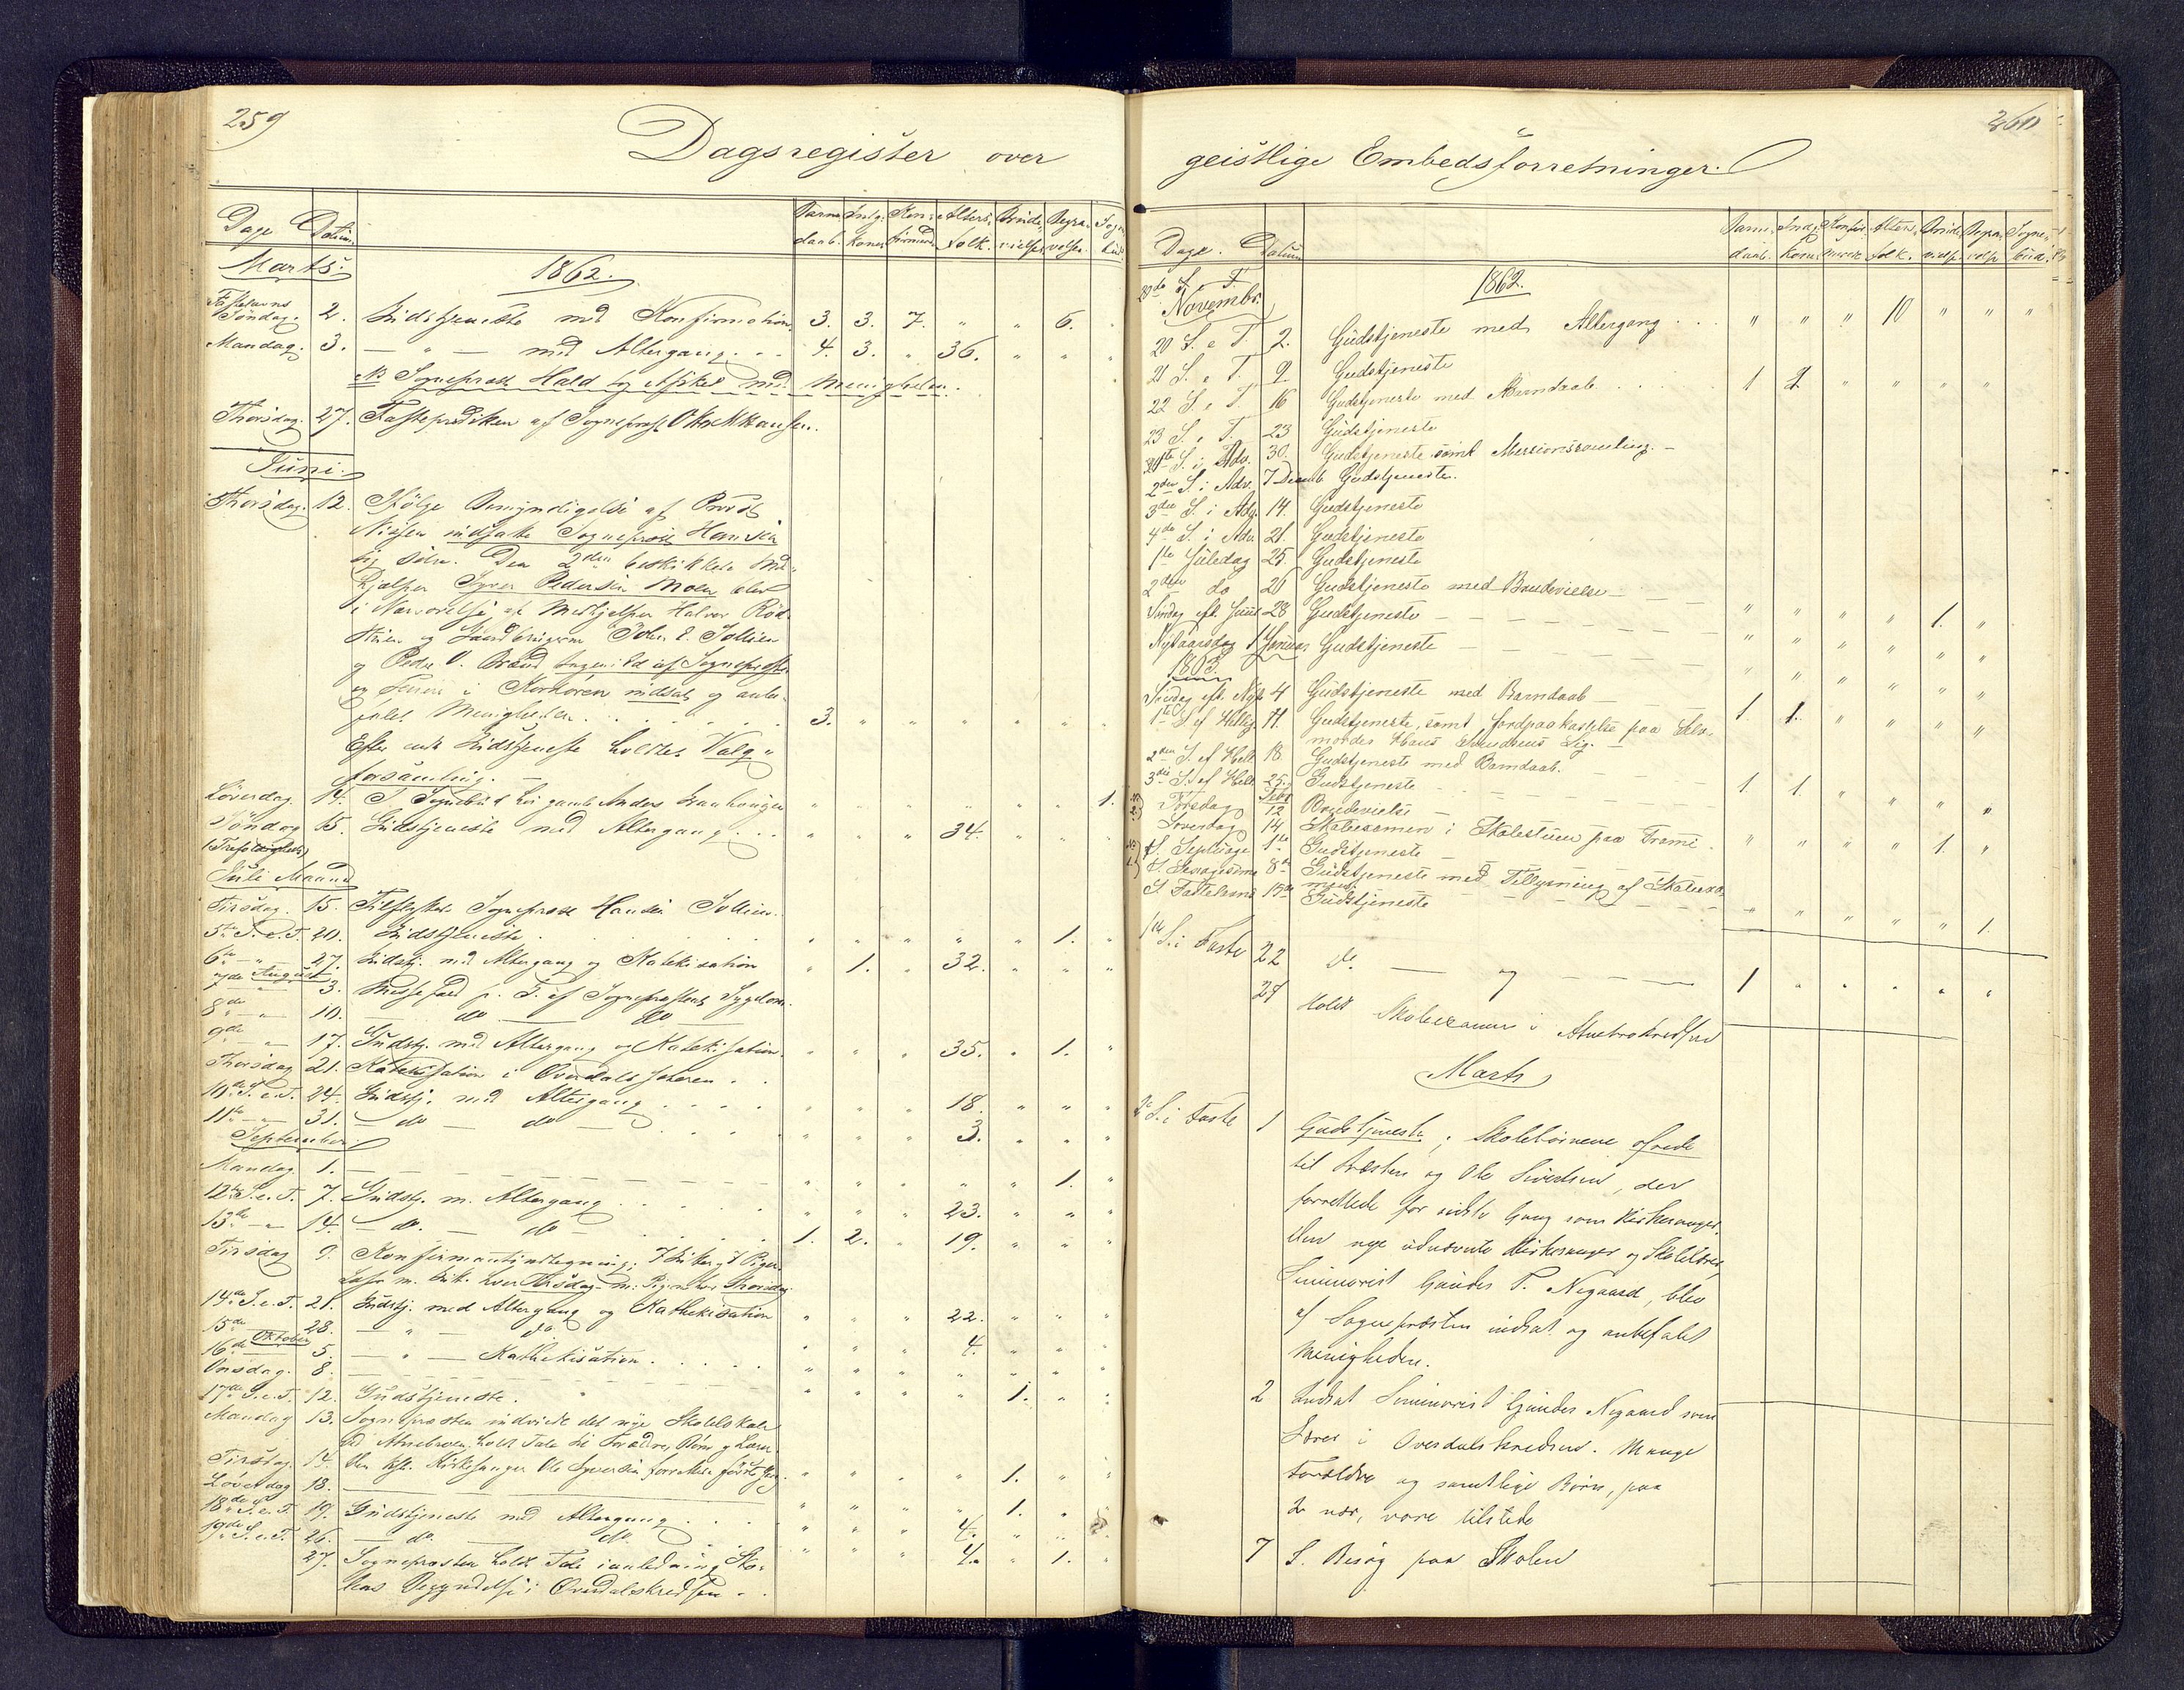 259
Dagsregister over
Dage Datum Barne daab. Indg. Koner Kon- firmerede Alters- folk. Brude- vielser Begra- velser Sogne bud
Marts. 1862.
Fastelavns
Søndag. 2. Gudstjeneste med Konfirmation. 3. 3. 7. " " 6.
Mandag. 3. — " — med Altergang. . . 4. 3. " 36. " " "
NB Sognepræst Hald tog Afsked med Menigheden.
Thorsdag. 27. Fasteprædiken af Sognepræst
Juni.
Thorsdag. 12. Ifølge Bemyndigelse af Provst
Nissen indsatte Sognepræst Hansen
sig selv. Den 2den beskikkede Med-
hjelper Syver Pedersen Moen blev
i Nærværelse af Medhjelper Halvor
og Gaardbrugerne John E. Tollien
og Peder O. Brænd tagen i Ed af Sognepræsten
og i Kordøren indsat og anbe-
falet Menigheden. . . . . . 3. " " " " "
Efter endt Gudstjeneste holdtes Valg-
forsamling. —
Løverdag. 14. I Sognebud hos gamle Anders " " " " " " 1.
Søndag 15. Gudstjeneste med Altergang . . . " " " 34. " "
(Trefoldigheds)
Juli Maaned
Tirsdag. 15. Tilflyttede Sognepræst Hansen Tollien.
5te S. e. T. 20. Gudstjeneste . . . . . " " " " " 1. "
6te — " — 27. Gudstj. med Altergang og Katekisation " 1. " 32. " " "
August
7de — " 3. Messefald p. G. af Sognepræstens Sygdom.
8de — " — 10. — do — do
9de — " 17. Gudstj. med Altergang og Katekisation. " " " 35. " 1. "
Thorsdag 21. Katekisation i Øverdals . .
10de S. e. T. 24. Gudstj. med Altergang . . . . " " " 18. " " "
11te — " 31. — do — do — . . . " " " 3. " "
September.
Mandag 1. — — — — — — " " " " " 1. "
12te S. e. T. 7. Gudstj. m. Altergang . . . . . " " " 23. " " "
13de — " 14. — do. — do — . . . . 1. 2. " 19. " "
Tirsdag 9. Konfirmantindtegning; 7 Gutter og 7 Piger.
Læse m. Gut. hver Tirsdag — m. Pigerne hver Thorsdag.
14de S. e. T. 21. Gudstj. med Altergang og Kathekisation " " " 22. " "
15de 28. — " — do " " " 4. " "
Oktober
16de 5. — " — Kathekisation . . . . " " " " " "
Onsdag. 8. — — " " " " 1. "
17de S. e. T. 12. Gudstjeneste.
Mandag 13. Sognepræsten indviede det nye Skolelokale
ved Atnebroen, holdt Tale til Forældre, Børn og Lærer.
Tirsdag. 14. Kirkesanger Ole Syversen forrettede første Gang. " " " " 1. " "
Løverdag 18. — " " " " 1. "
18de S. e. T. 19. Gudstjeneste med Altergang . . . " " " 4. " "
19de S. e. T. 26. — do. — do. " " " 4. " 1. "
27. Sognepræsten holdt Tale i anledning Sko-
lens Begyndelse i Øverdalskredsen . .
260
geistlige Embedsforretninger.
Dage. Datum Barne daab. Indg. Kone. Konfir- merede Alter- folk. Brude- vielse Begra- velse Sogne- bud.
20de S. e. T. 1862.
Novembr.
20 S. e T. 2. Gudstjeneste med Altergang . . . " " " 10 " " "
21 S. e T. 9. Gudstjeneste
22 S. e T. 16 Gudstjeneste med Barndaab . . . . 1 1 " " " "
23 S. e T. 23 Gudstjeneste
1ste S. i Adv. 30. Gudstjeneste samt Missionssamling. —
2den S. i Adv. 7 Decemb Gudstjeneste.
3die S. i Adv. 14. Gudstjeneste
4de S. i Adv 21. Gudstjeneste
1ste Juledag 25. Gudstjeneste
2den do 26 Gudstjeneste med Brudevielse — — — " " " " 1. "
Søndag eft. Juul 28 Gudstjeneste — — — — " " " " " "
Nytaarsdag 1 Januar Gudstjeneste — — — — " " " " " "
1863.
Søndag eft. Nyt. 4 Gudstjeneste med Barndaab — — 1 1. " " " "
1ste S. ef. Hellig. 11 Gudstjeneste, samt Jordpaakastelse paa Selv-
morder Hans Lig. —
2den S. ef Hell. 18. Gudstjeneste med Barndaab. 1 1. " " " "
3die S. ef Hell. 25. Gudstjeneste — — —
Febr
Torsdag 12 Brudevielse — " " " " 1. "
Løverdag 14 Skoleexamen i Skolestuen paa
S. Septuage 1ste Gudstjeneste —
S. Sexagesima 8de Gudstjeneste med Tillysning af Skoleexa-
men.
S. Fastelavns 15de Gudstjeneste — — — " " " " " 1.
1ste S. i Faste 22 do. — " — — — 1 " " " " "
27 Holdt Skoleexamen i Atnebrokredsen
Marts
2. S. i Faste 1 Gudstjeneste; Skolebørnene ofrede
til Præsten og Ole Sivertsen, der
forrettede for sidste Gang som Kirkesanger.
Den nye udnævnte Kirkesanger og Skolelærer,
Seminarist Gunder P. Negaard, blev
af Sognepræsten indsat og anbefalet
Menigheden.
2 Indsat Seminarist Gunder Negaard som
Lærer i Øverdalskredsen. Mange
Forældre og samtlige Børn, paa
2 nær, vare tilstede
7 S. Besøg paa Skolen